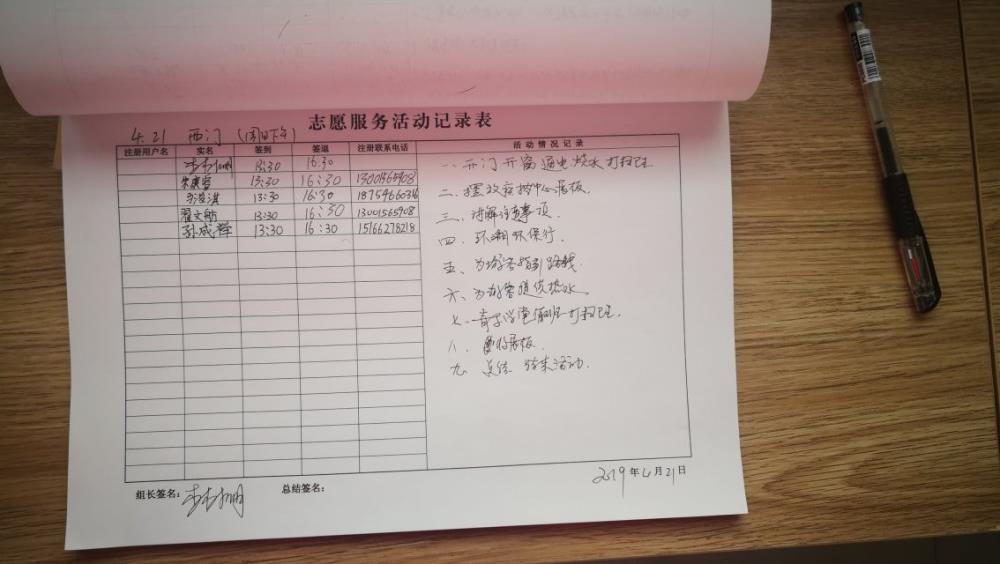 志愿服务活动记录表
4.21 西门 (周日下午)
注册用户名 实名 签到 签退 注册联系电话 活动情况记录
13:30 16:30
13:30 16:30 13001565908
13:30 16:30 18754660316
翟文舫 13:30 16:30 13001565908
孙成泽 13:30 16:30 15166278218
一.西门开窗通电烧水打扫卫生
二.摆放 中心展板.
三.讲解注意事项.
四.环湖环保行.
五.为游客指引路线.
六.为游客提供热水.
七. 学堂 打扫卫生.
八. 收展板.
九.总结 结束活动.
2019年4月21日
组长签名: 总结签名: